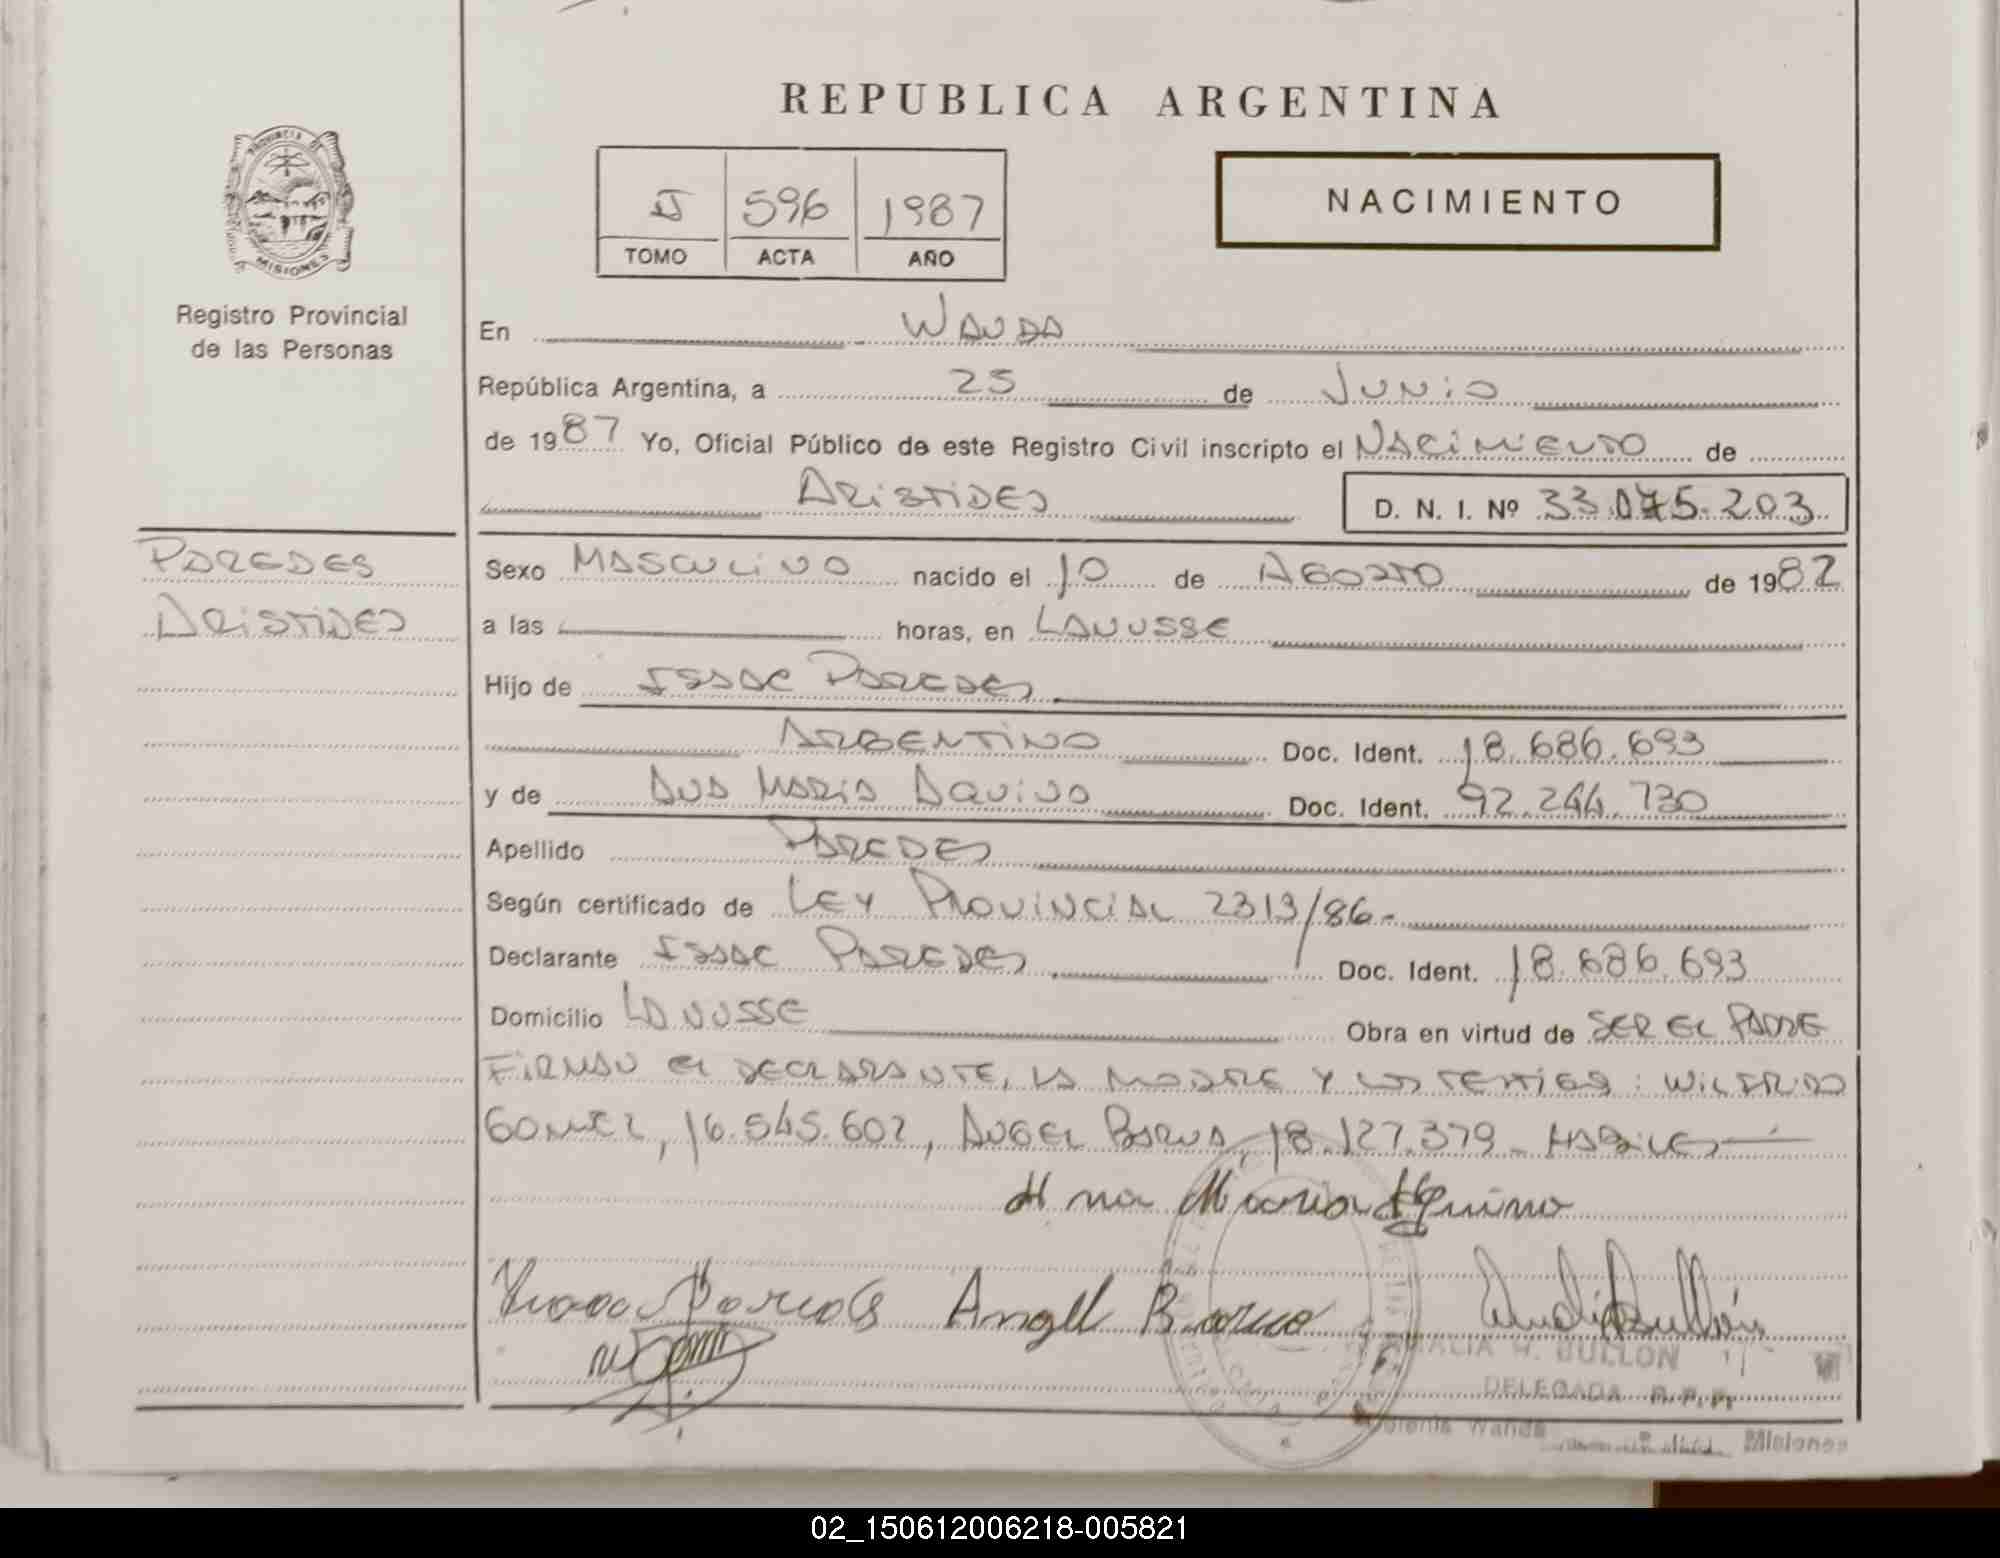 REPUBLICA ARGENTINA
PROVINCIA DE
MISIONES
Registro Provincial
de las Personas
596 1987
TOMO ACTA AÑO
NACIMIENTO
En WANDA
República Argentina, a 25 de JUNIO
de 1987 Yo, Oficial Público de este Registro Civil inscripto el NACIMIENTO de
ARISTIDES D. N. I. Nº 33.075.203
PAREDES
ARISTIDES
Sexo MASCULINO nacido el 10 de AGOSTO de 1982
a las horas, en LANUSSE
Hijo de ISAAC PAREDES
ARGENTINO Doc. Ident. 18.686.693
y de ANA MARIA AQUINO Doc. Ident. 92.244.730
Apellido PAREDES
Según certificado de LEY PROVINCIAL 2313/86.-
Declarante ISAAC PAREDES Doc. Ident. 18.686.693
Domicilio LANUSSE Obra en virtud de SER EL PADRE
FIRMAN EL DECLARANTE, LA MADRE Y LOS TESTIGOS: WILFRIDO
GOMEZ, 16.545.602, ANGEL BARUA, 18.127.379 - HABILES
Ana Maria Aquino
Angel Barua
AMALIA H. BULLON
DELEGADA R.P.P.
Colonia Wanda Misiones
02_150612006218-005821